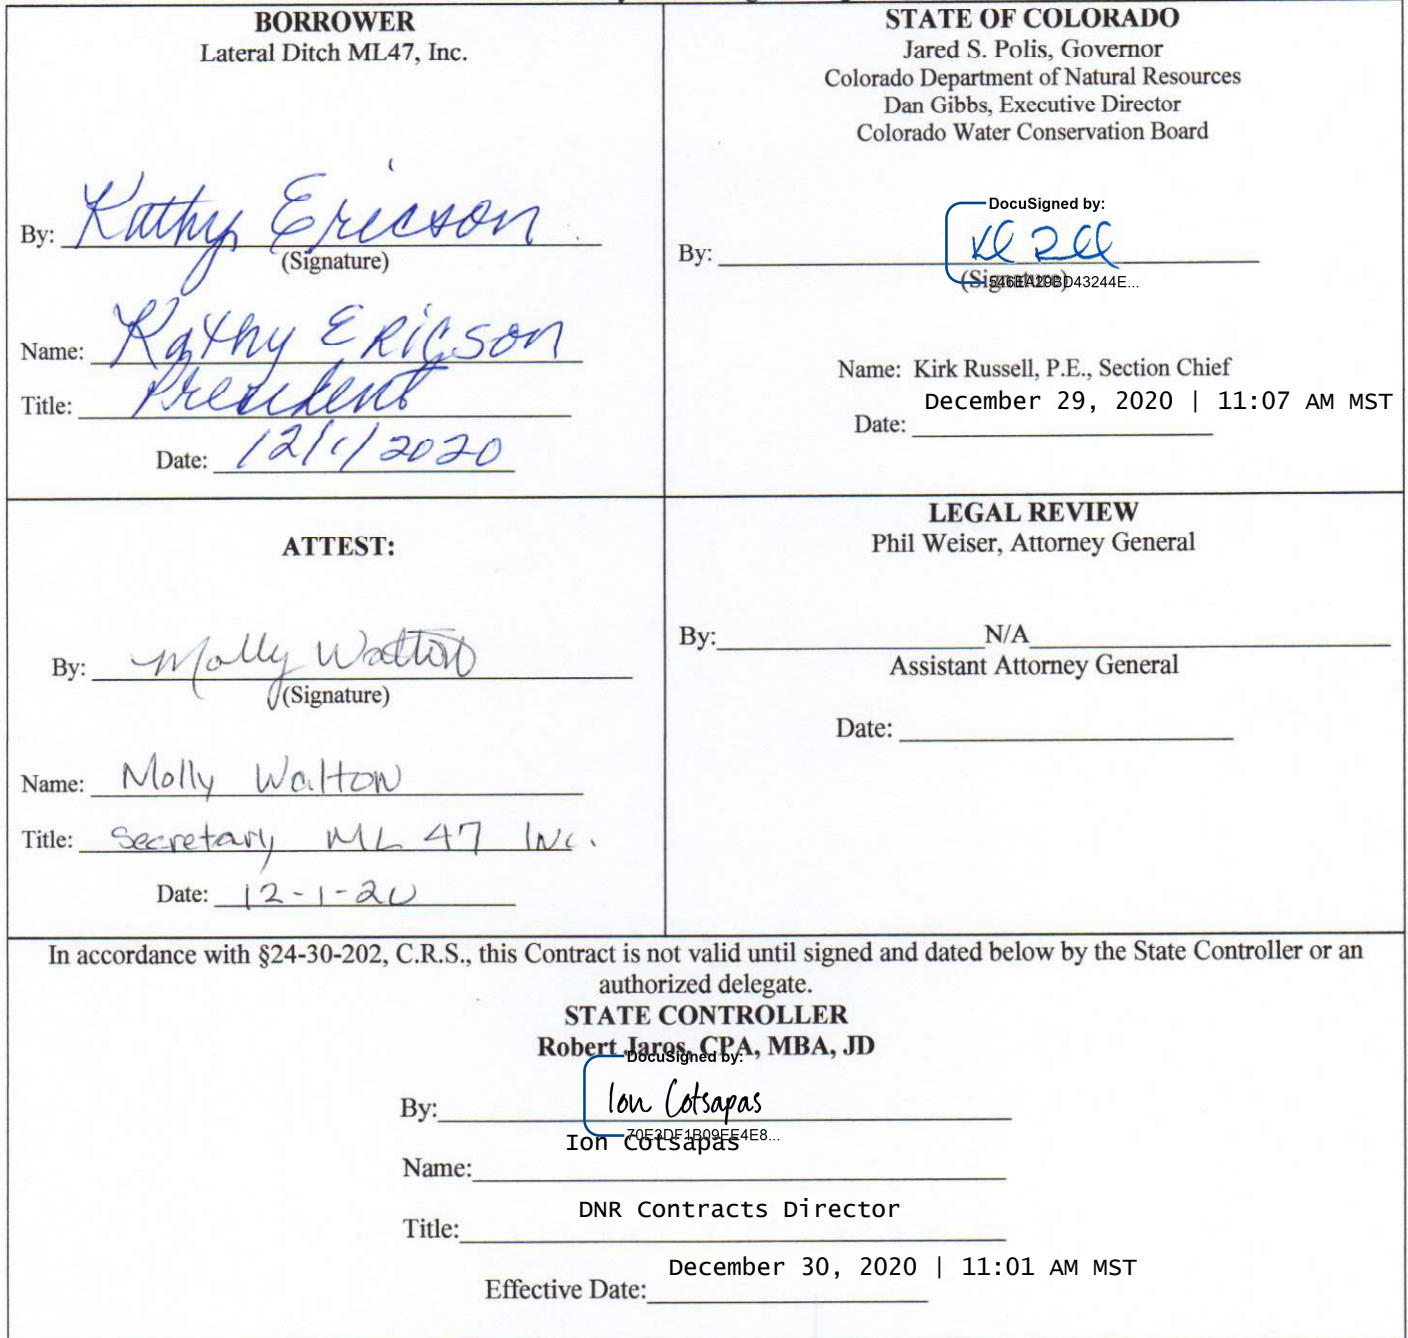 BORROWER
Lateral Ditch ML47, Inc.
By: Kathy Ericson
(Signature)
Name: Kathy Ericson
Title: President
Date: 12/1/2020
STATE OF COLORADO
Jared S. Polis, Governor
Colorado Department of Natural Resources
Dan Gibbs, Executive Director
Colorado Water Conservation Board
DocuSigned by:
By:
(Signature)
546EA29BD43244E...
Name: Kirk Russell, P.E., Section Chief
December 29, 2020 | 11:07 AM MST
Date:
ATTEST:
By: Molly Walton
(Signature)
Name: Molly Walton
Title: Secretary ML 47 Inc.
Date: 12-1-20
LEGAL REVIEW
Phil Weiser, Attorney General
By: N/A
Assistant Attorney General
Date:
In accordance with §24-30-202, C.R.S., this Contract is not valid until signed and dated below by the State Controller or an
authorized delegate.
STATE CONTROLLER
Robert Jaros, CPA, MBA, JD
DocuSigned by:
By: Ion Cotsapas
70E3DF1B09EE4E8...
Ion Cotsapas
Name:
DNR Contracts Director
Title:
December 30, 2020 | 11:01 AM MST
Effective Date: